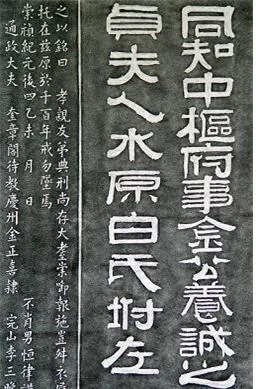 同知中樞府事金公養誠之
貞夫人水原白氏祔左
之以銘曰 孝親友弟典刑尚存大耋崇卿報施豈舛衣
托在玆原於千百年戒勿墮馬
崇禎紀元後四乙未 月 日 不肖男恒律謹
通政大夫 奎章閣待敎慶州金正喜隷 完山李三晩